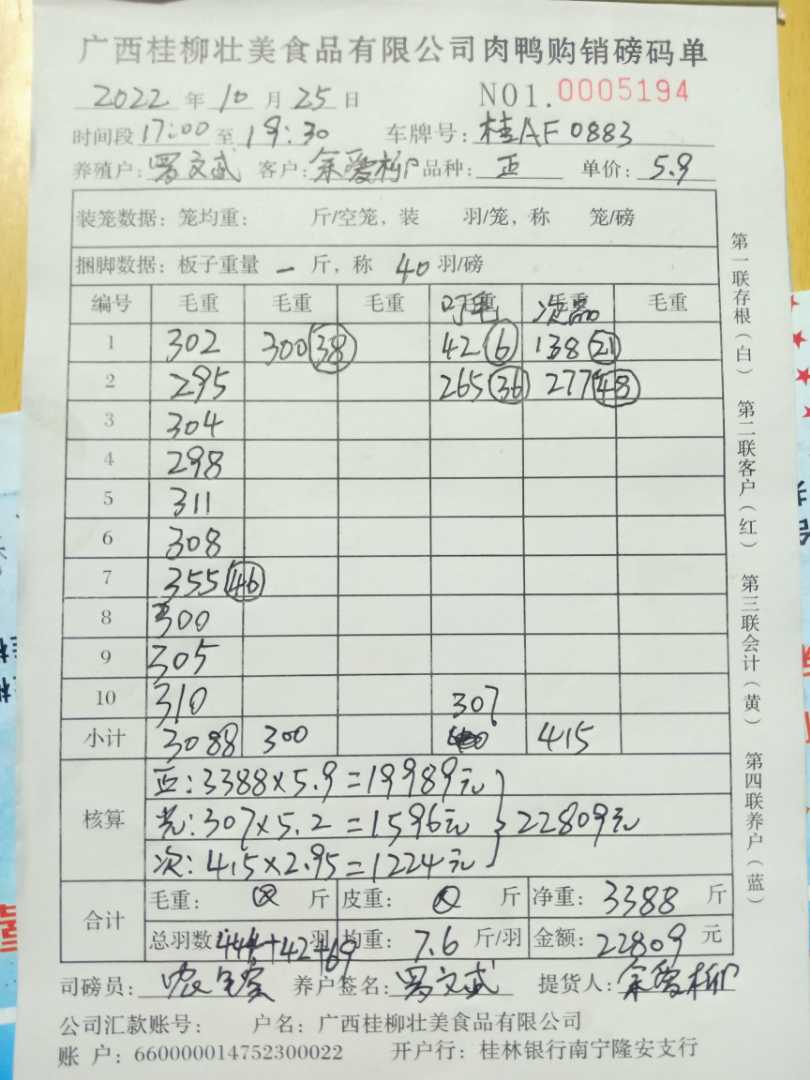 广西桂柳壮美食品有限公司肉鸭购销磅码单
2022 年 10 月 25 日 NO1.0005194
时间段 17:00 至 19:30 车牌号: 桂AF0883
养殖户: 罗文武 客户: 余爱柳 品种: 正 单价: 5.9
装笼数据: 笼均重: 斤/空笼, 装 羽/笼, 称 笼/磅
捆脚数据: 板子重量 一 斤, 称 40 羽/磅
编号 毛重 毛重 毛重 毛重 次品 毛重
1 302 300 38 42 6 138 21
2 295 265 36 277 48
3 304
4 298
5 311
6 308
7 355 46
8 300
9 305
10 310 307
小计 3088 300 415
核算
正: 3388×5.9=19989元
光: 307×5.2=1596元 22809元
次: 415×2.95=1224元
合计
毛重: 斤 皮重: 斤 净重: 3388 斤
总羽数 444+42+69 羽 均重: 7.6 斤/羽 金额: 22809 元
司磅员: 养户签名: 罗文武 提货人: 余爱柳
公司汇款账号: 户名: 广西桂柳壮美食品有限公司
账 户: 660000014752300022 开户行: 桂林银行南宁隆安支行
第一联存根(白) 第二联客户(红) 第三联会计(黄) 第四联养户(蓝)